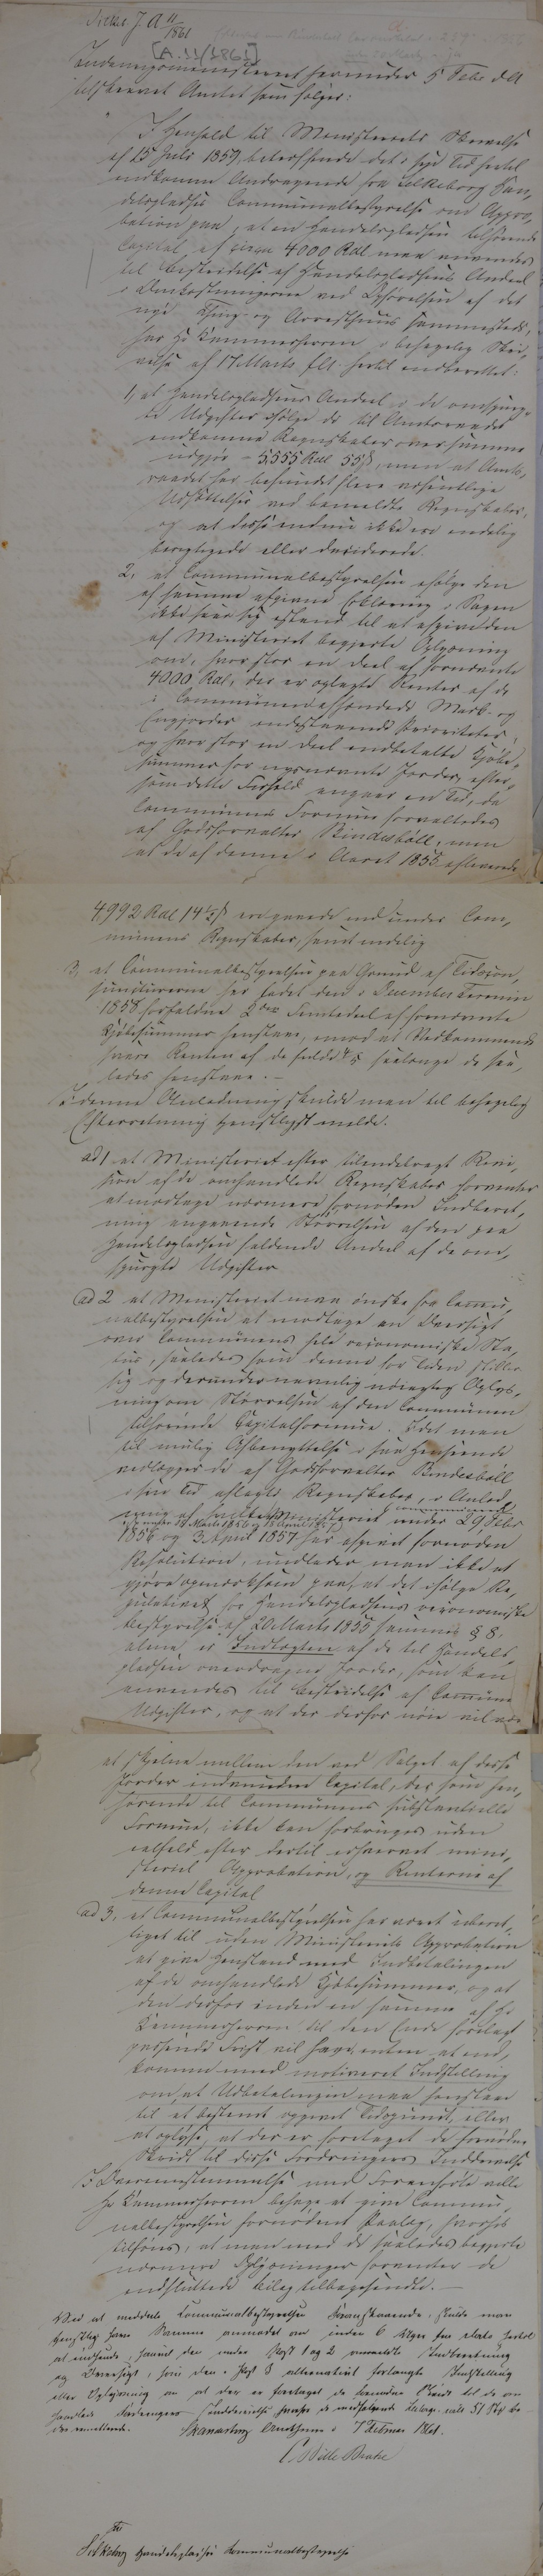 J. A 11/1861
[A. 11/1861]
Indenrigsministeriet herunder 5 Febr d. A
tilskrevet Amtet som følger:
I Henhold til Ministeriets Skrivelse
af 15 Juli 1859, betræffende det i sin Tid hertil
indkomne Andragende fra Silkeborg Han,
delsplads's Communalbestyrelse om Appro,
bation paa, at en Handelspladsen tilhørende
Capital af circa 4000 Rdl maa anvendes
til Bestridelse af Handelspladsens Andeel
i Omkostningerne ved Opførelsen af det
nye Thing- og Arresthuus sammesteds,
har Hr Kammerherren i behagelig Skri,
velse af 17 Marts f. A. hertil indberettet:
1, at Handelspladsens Andeel i de omspurg-
te Udgifter ifølge de til Amtsraadet
indkomne Regnskaber over samme
udgjør - 5,555 Rdl 55 ß, men at Amts,
raadet har befundet flere væsentlige
Udsættelser ved bemeldte Regnskaber,
og at disse endnu ikke ere endelig
berigtigede eller deciderede.
2, at Communalbestyrelsen ifølge den
af samme afgivne Erklæring i Sagen
ikke seer sig istand til at afgive den
af Ministeriet begjerte Oplysning
om, hvor stor en Deel af fornævnte
4000 Rdl, der er oplagte Renter af de
i Communens afhændede Mark- og
Engjorder indestaaende Prioriteter,
og hvor stor en Deel indbetalte Kjøbe-
summer for nysnævnte Jorder, efter,
som dette Forhold angaaer en Tid, da
Communens Formue forvaltedes
af Godsforvalter Bindesbøll, men
at de af denne i Aaret 1855 afleverede
4,992 Rdl 14½ ß ere gaaede ind under Com,
munens Regnskaber, samt endelig
3, at Communalbestyrelsen paa Grund af Tidscon,
juncturerne har ladet den i December Termin
1858 forfaldne 2den Femtedeel af fornævnte
Kjøbesummer henstaae, mod at Vedkommende
svare Renten af de fulde saalænge de saa,
ledes henstaae. -
I denne Anledning skulde man til behagelig
Efterretning tjenstligst melde.
ad 1 at Ministeriet efter tilendebragt Revi,
sion af de omhandlede Regnskaber forventer
at modtage nærmere fornøden Indberet,
ning angaaende Størrelsen af den paa
Handelspladsen faldende Andeel af de om,
spurgte Udgifter
ad 2 at Ministeriet maa ønske fra Commu,
nalbestyrelsen at modtage en Oversigt
over Communens hele oeconomiske Sta,
tus, saaledes som denne for Tiden stiller
sig og derunder navnlig nøiagtig Oplys,
ning om Størrelsen af den Communen
tilhørende Capitalformue. Idet man
til mulig Afbenyttelse i saa Henseende
vedlægger de af Godsforvalter Bindesbøll
i sin Tid aflagte Regnskaber, i Anled,
ning af hvilke Ministeriet under 29 Febr
1856 og 3 April 1857 har afgivet fornøden
(communiceret under 14 Marts 1856 og 18 April 1857)
Resolution, undlader man ikke at
gjøre opmærksom paa, at det ifølge Re,
gulativet for Handelspladsens oeconomiske
Bestyrelse af 20 Marts 1855 sammes § 8,
alene er Indtægten af de til Handels,
pladsen overdragne Jorder, som kan
anvendes til Bestridelse af Commune
Udgifter, og at der derfor nøie vil være
at skjelne mellem den ved Salget af disse
Jorder indvundne Capital, der som hen,
hørende til Communens substantielle
Formue, ikke kan forbruges uden
ialfald efter dertil erhvervet mini,
steriel Approbation, og Renterne af
denne Capital
ad 3, at Communalbestyrelsen har været uberet,
tiget til uden Ministeriets Approbation
at give Henstand med Indbetalingen
af de omhandlede Kjøbesummer, og at
den derfor inden en samme af Hr
Kammerherren til den Ende forelagt
passende Frist vil have enten at ind,
komme med motiveret Indstilling
om, at Udbetalingen maa henstaae
til et bestemt opgivet Tidspunct, eller
at oplyse at der er foretaget de fornødne
Skridt til disse Fordringers Inddrivelse
I Overeensstemmelse med Foranførte ville
Hr Kammerherren behage at give Commu,
nalbestyrelsen fornødent Paalæg, hvorhos
tilføies, at man med de saaledes begjærte
nærmere Oplysninger forventer de
indsluttede Bilag tilbagesendte. -
Ved at meddele Communalbestyrelsen Foranstaaende, skulde man
tjenstlig have Samme anmodet om inden 6 Uger fra Dato hertil
at indsende, saavel den under Post 1 og 2 ommeldte Indberetning
og Oversigt, som den i Post 3 alternativt forlangte Indstilling
eller Oplysning om at der er foretaget de fornødne Skridt til de om
handlede Fordringers Inddrivelse de medfølgende Bilage
der remitteres. Skanderborg Amthuus d. 7 Februar 1861.
C. Bille Brahe
Til
Silkeborg Handelsplads's Communalbestyrelse